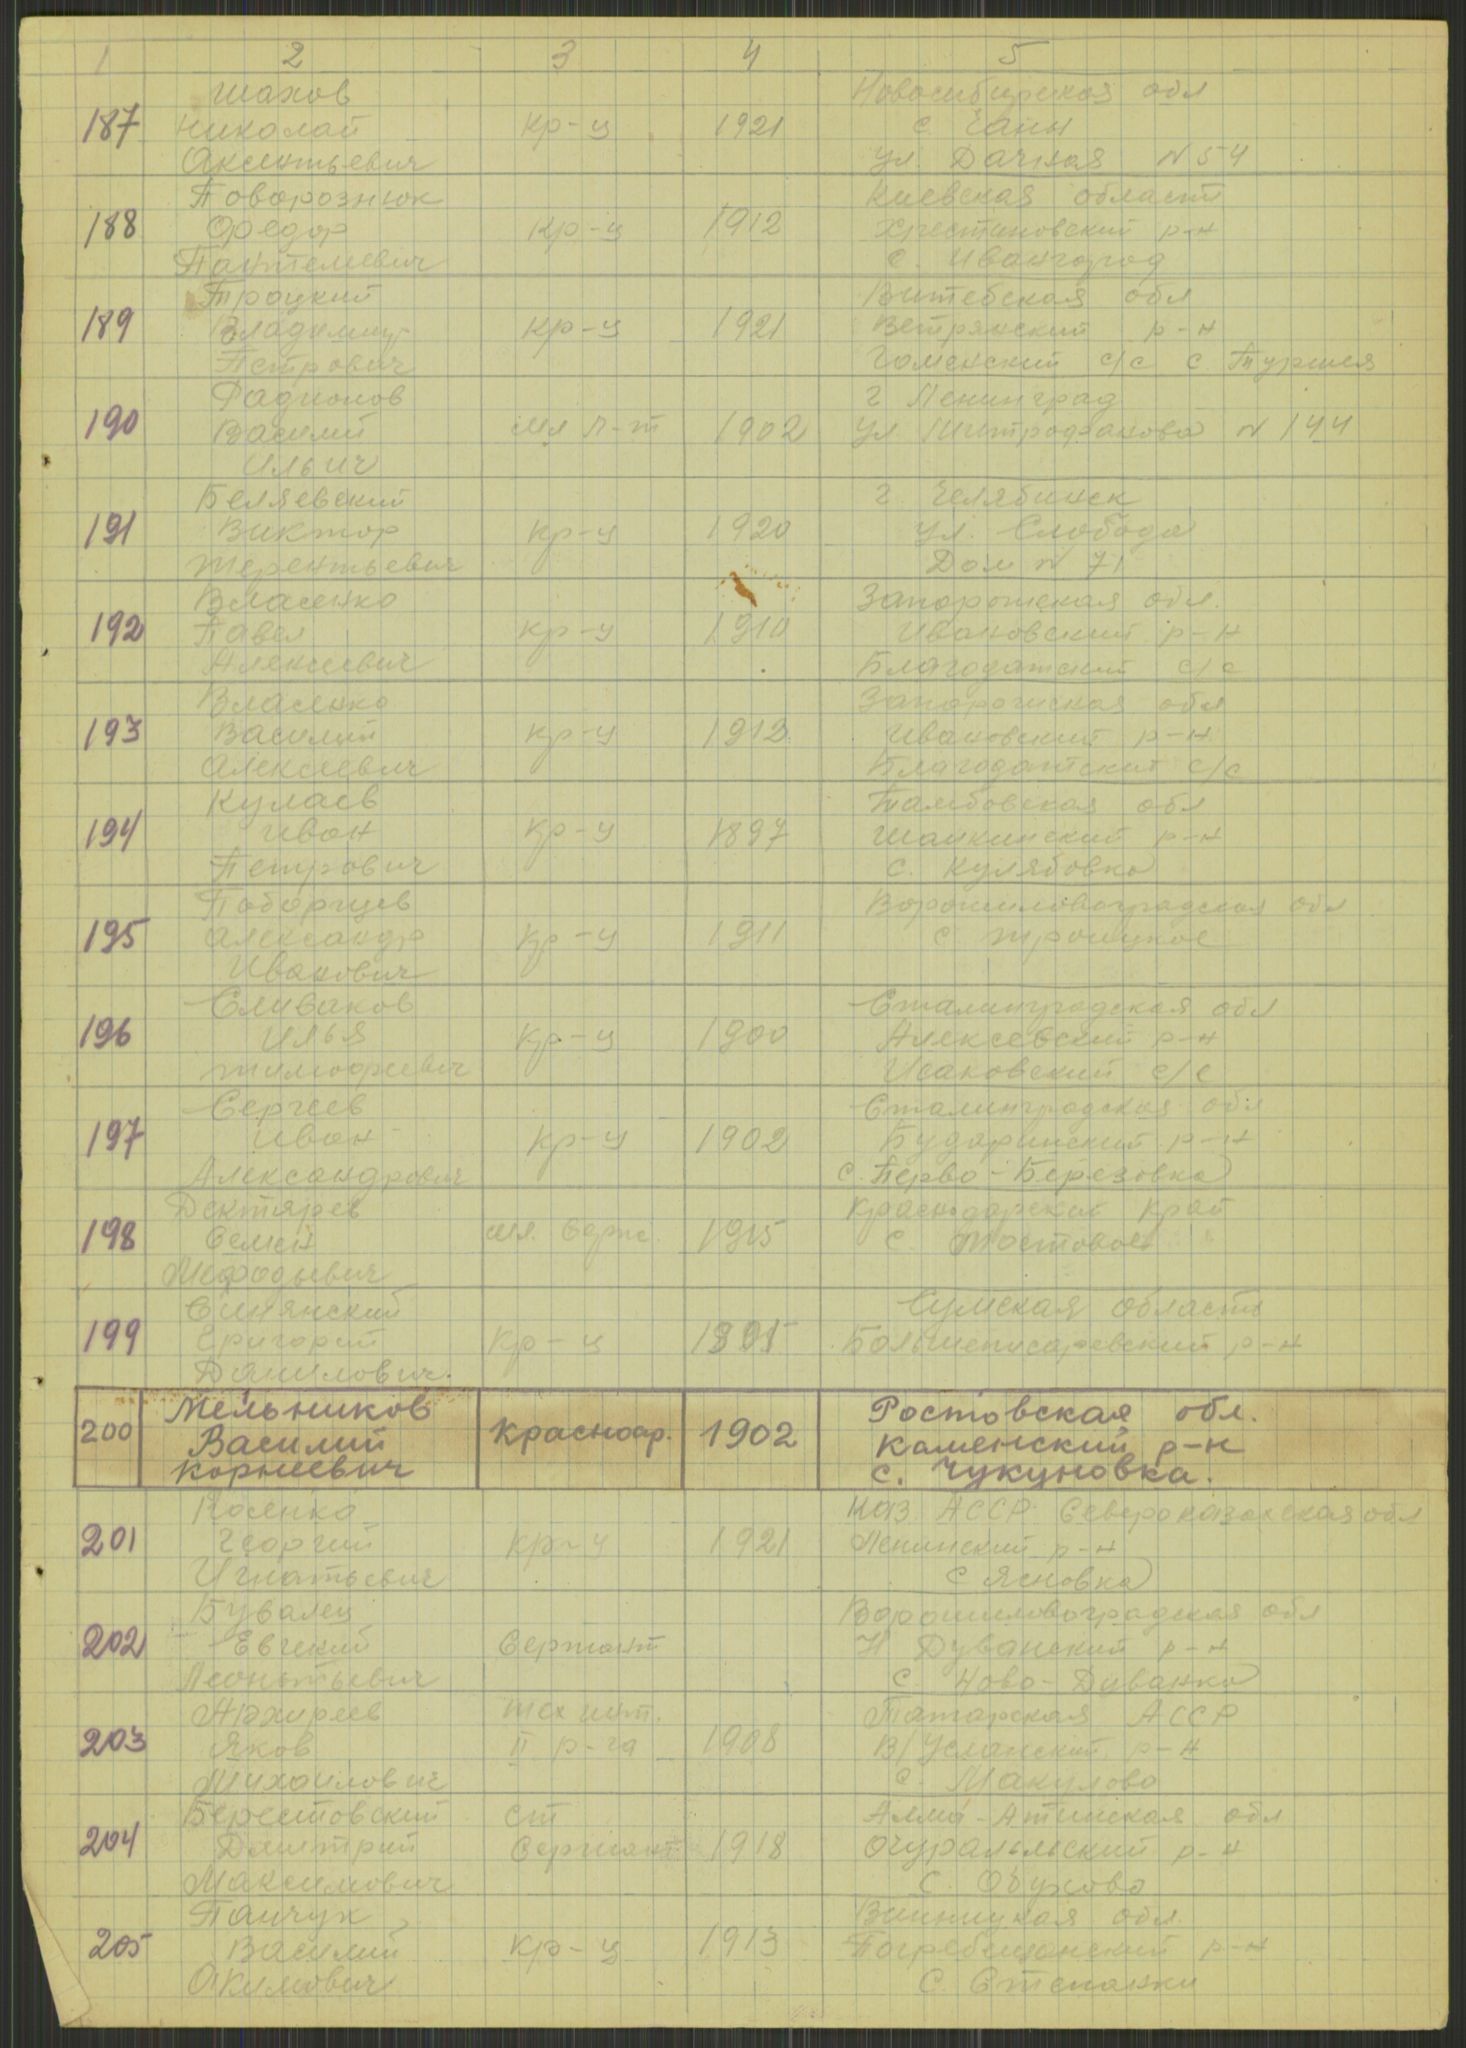 1 2 3 4 5
Шахов Новосибирская обл
187 Николай кр-ц 1921 с. Чаны
Аксентьевич ул. Дачная N 54
Поворознюк Киевская область
188 Федор кр-ц 1912 Христиновский р-н
Пантелеевич с. Ивангород
Троцкий Витебская обл
189 Владимир кр-ц 1921 Ветринский р-н
Петрович Гоменский с/с с. Туржея
Фадионов г Ленинград
190 Василий мл л-т 1902 ул Митрофанова N 144
Ильич
Беляевский г. Челябинск
191 Виктор кр-ц 1920 ул. Слобода
Терентьевич Дом N 71
Власенко Запорожская обл.
192 Павел кр-ц 1910 Ивановский р-н
Алексеевич Благодатский с/с
Власенко Запорожская обл
193 Василий кр-ц 1912 Ивановский р-н
Алексеевич Благодатский с/с
Кулаев Тамбовская обл
194 Иван кр-ц 1897 р-н
Петрович с. Кулябовка
Поборцев Ворошиловоградская обл
195 Александр кр-ц 1911 с Троицкое
Иванович
Сливаков Сталинградская обл
196 Илья кр-ц 1900 Алексеевский р-н
Тимофеевич Исаковский с/с
Сергеев Сталинградская обл
197 Иван кр-ц 1902 Бударинский р-н
Александрович с. Перво-Березовка
Дектярев Краснодарский край
198 Семен мл. Серж. 1915 с. Мостовое
Мефодьевич
Синянский Сумская область
199 Григорий кр-ц Большеписаревский р-н
Данилович.
Мельников Ростовская обл.
200 Василий красноар. 1902 Каменский р-н
Корнеевич с. Чукуновка.
Косенко Каз. АССР Североказахская обл
201 Георгий кр-ц 1921 Ленинский р-н
Игнатьевич с Ясновка
Бувалец Ворошиловоградская обл
202 Евгений Сержант Н Дуванский р-н
Леонтьевич с. Ново-Дуванка
Архиреев тех инт. Татарская АССР
203 Яков II р-га 1908 В/Услонский р-н
Михайлович с. Макулово
Берестовский ст Алма-Атинская обл
204 Дмитрий Сержант 1918 р-н
Максимович с. Обухово
Панчук Винницкая обл.
205 Василий кр-ц 1913 Погребищанский р-н
Акимович с. Степанки